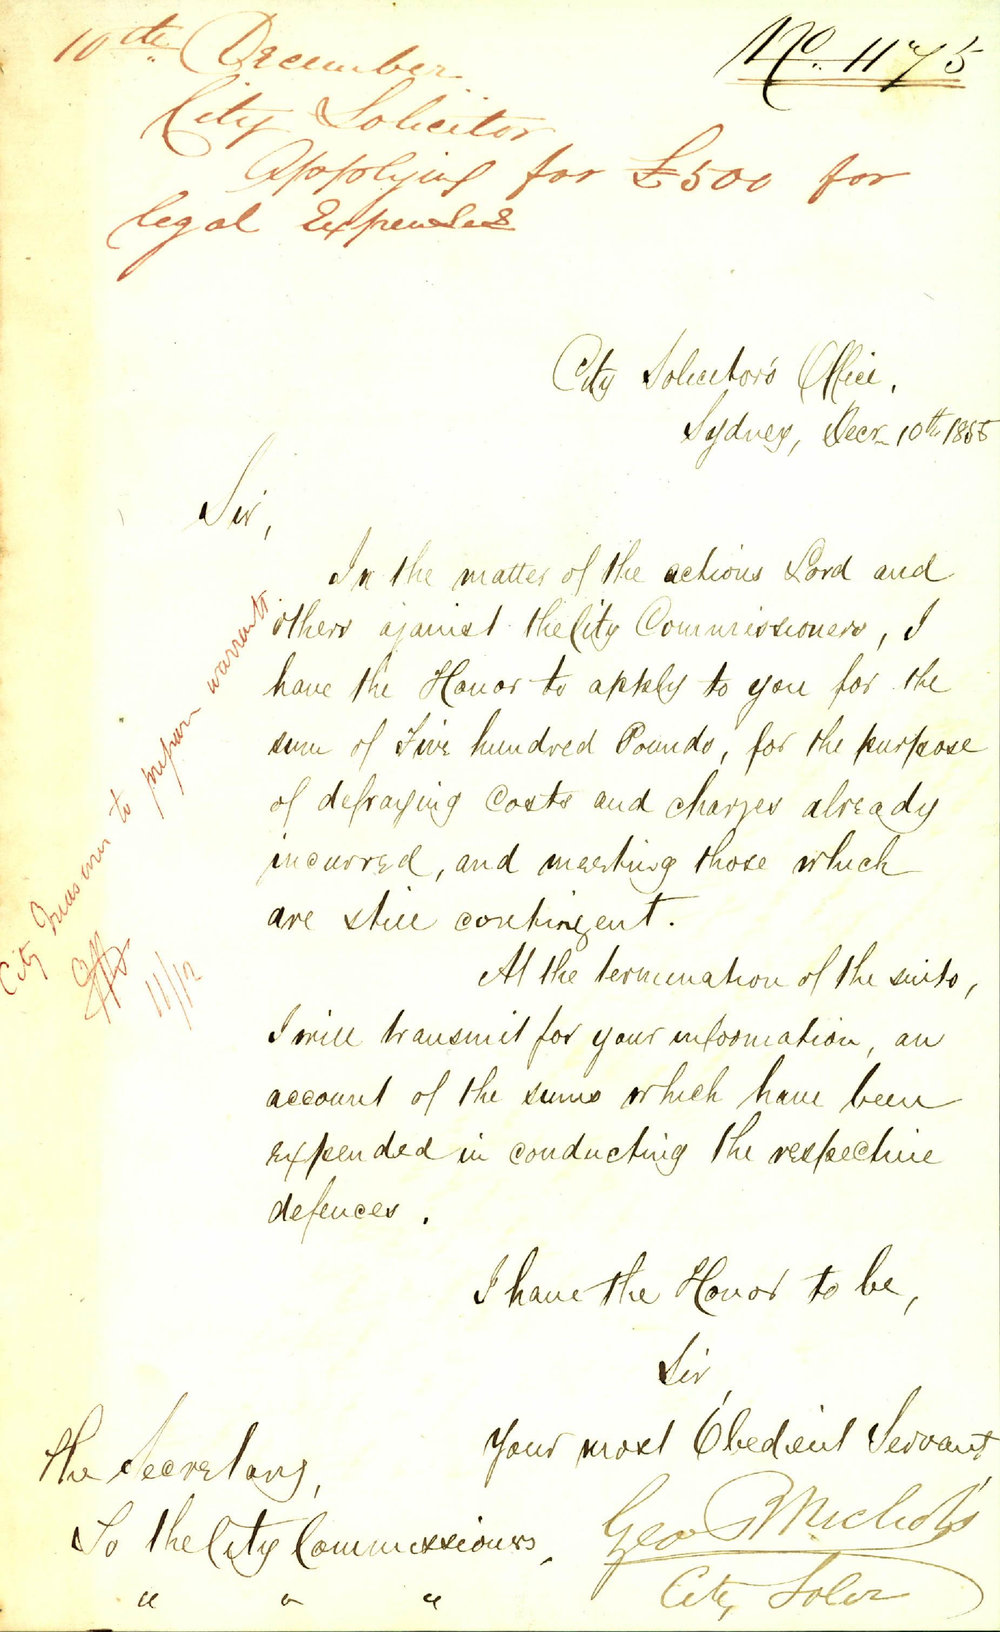 10th December
No. 1175
City Solicitor
Applying for £500 for
legal Expenses
City Solicitor's Office,
Sydney, Decr 10th 1855
Sir,
In the matter of the actions Lord and
others against the City Commissioners, I
have the Honor to apply to you for the
sum of Five hundred Pounds, for the purpose
of defraying Costs and charges already
incurred, and meeting those which
are still contingent.
At the termination of the suits,
I will transmit for your information, an
account of the sums which have been
expended in conducting the respective
defences.
City Treasurer to prepare warrants
11/12
I have the Honor to be,
Sir,
Your most Obedient Servant
Geo R Nichols
City Solr
The Secretary,
To the City Commissioners,
" " "